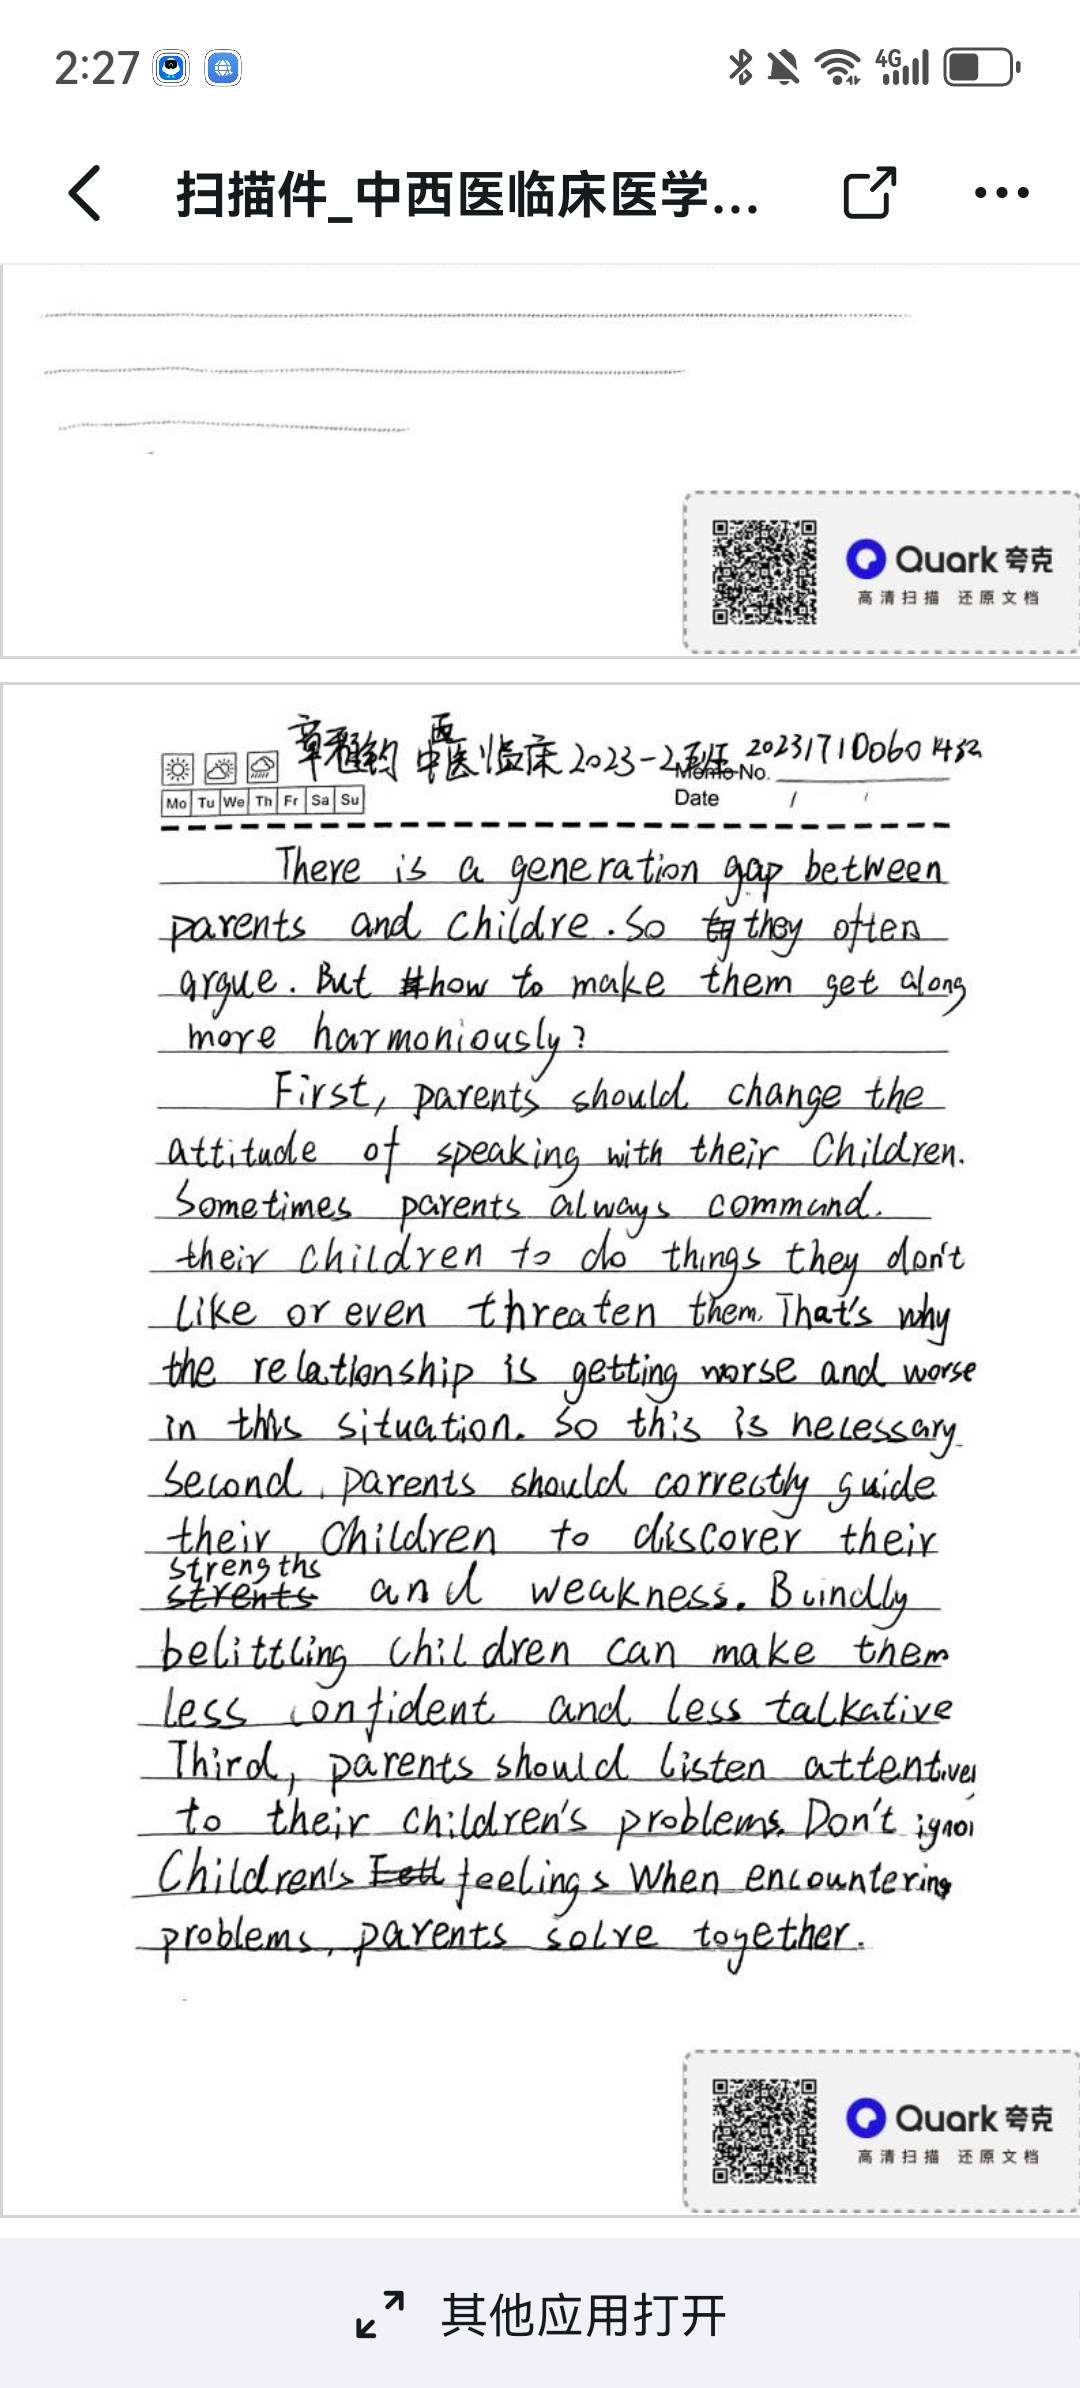 2:27
4G
扫描件_中西医临床医学...
Quark 夸克
高清扫描 还原文档
西
中医临床2023-2班 202317100601432
Memo No.
Mo Tu We Th Fr Sa Su
Date / /
There is a generation gap between
parents and childre. So they often
argue. But how to make them get along
more harmoniously?
First, parents should change the
attitude of speaking with their Children.
Sometimes parents always command.
their children to do things they don't
like or even threaten them. That's why
the relationship is getting worse and worse
in this situation. So this is necessary
Second, parents should correctly guide
their Children to discover their
strengths
strents and weakness. Buindly
belittling children can make them
less confident and less talkative
Third, parents should listen attentivel
to their children's problems. Don't ignor
Children's feelings When encountering
problems, parents solve together.
Quark 夸克
高清扫描 还原文档
其他应用打开